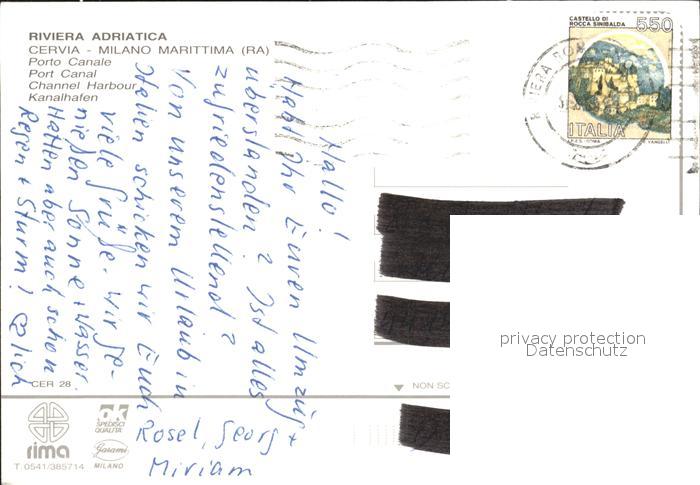 RIVIERA ADRIATICA
CERVIA - MILANO MARITTIMA (RA)
Porto Canale
Port Canal
Channel Harbour
Kanalhafen
CASTELLO DI
ROCCA SINIBALDA
550
ITALIA
Hallo!
Habt Ihr Euren Umzug
überstanden? Ist alles
zufriedenstellend?
Von unserem Urlaub in
Italien schicken wir Euch
viele Grüße. Wir ge-
nießen Sonne + Wasser.
Hatten aber auch schon
Regen + Sturm!
Rosel, Georg +
Miriam
privacy protection
Datenschutz
CER 28
NON SC
rima
T. 0541/385714
ok
SPEDISCI
QUALITÀ
Garami
MILANO